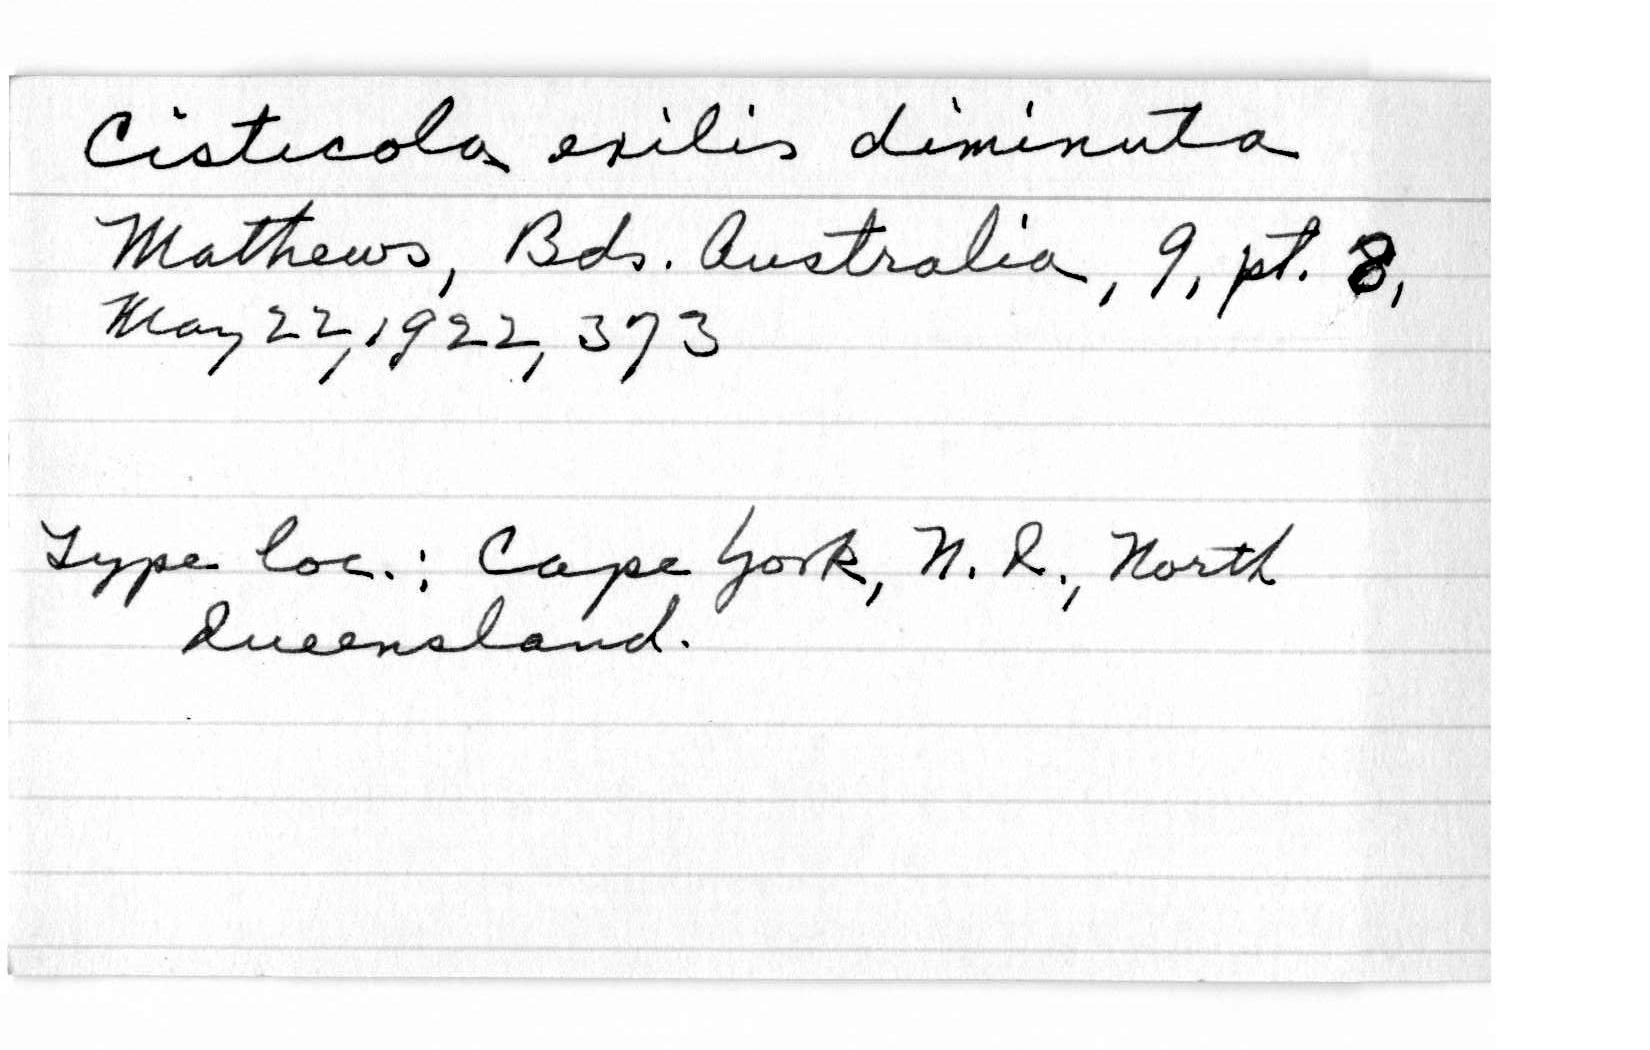 Cisticola exilis diminuta
Mathews, Bds. Australia, 9, pt. 8,
May 22, 1922, 373
Type loc.: Cape York, N. Q., North
Queensland.